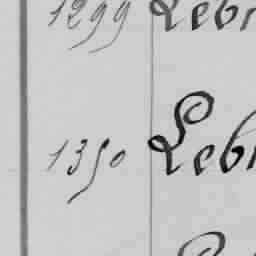 1299 Lebr
1350 Leb